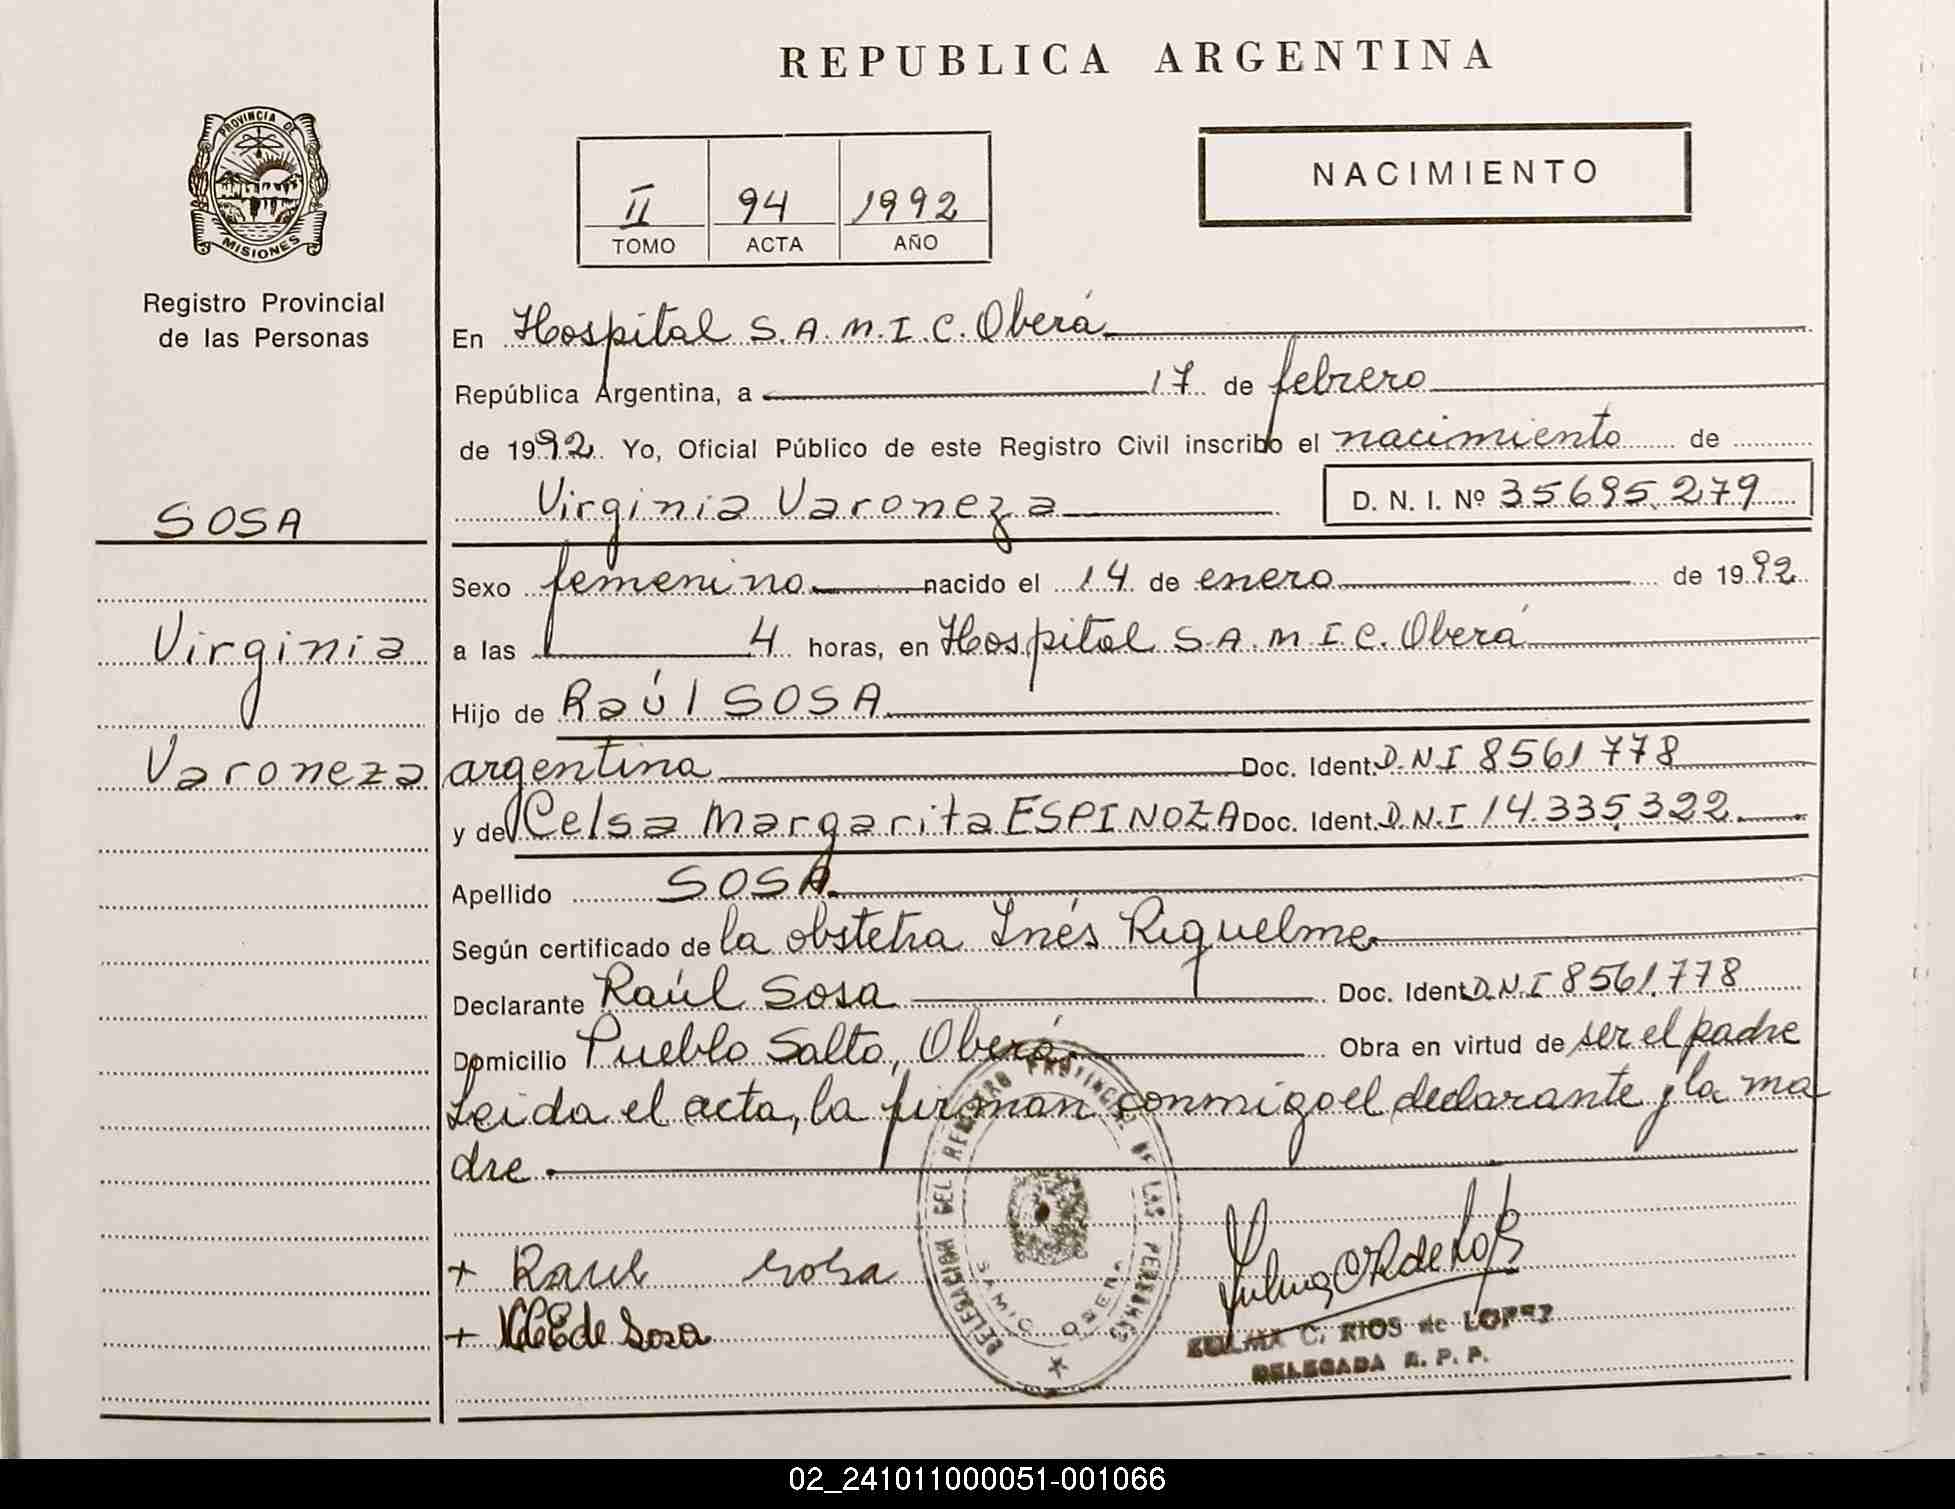 REPUBLICA ARGENTINA
PROVINCIA DE
MISIONES
Registro Provincial
de las Personas
II 94 1992
TOMO ACTA AÑO
NACIMIENTO
SOSA
Virginia
Varoneza
En Hospital S.A.M.I.C. Oberá
República Argentina, a 17 de febrero
de 1992. Yo, Oficial Público de este Registro Civil inscribo el nacimiento de
Virginia Varoneza D. N. I. Nº 35695.279
Sexo femenino nacido el 14 de enero de 1992
a las 4 horas, en Hospital S.A.M.I.C. Oberá
Hijo de Raúl SOSA
argentina Doc. Ident. D.N.I 8561778
y de Celsa Margarita ESPINOZA Doc. Ident. D.N.I 14.335.322
Apellido SOSA
Según certificado de la obstetra Inés Riquelme
Declarante Raúl Sosa Doc. Ident. D.N.I 8561.778
Domicilio Pueblo Salto, Oberá Obra en virtud de ser el padre
Leida el acta, la firman conmigo el declarante y la ma
dre
+ Raul Sosa
+ de Sosa
DELEGACION DEL REGISTRO PROVINCIAL DE LAS PERSONAS
SAMIC OBERA
ZULMA C. RIOS de LOPEZ
DELEGADA R. P. P.
02_241011000051-001066